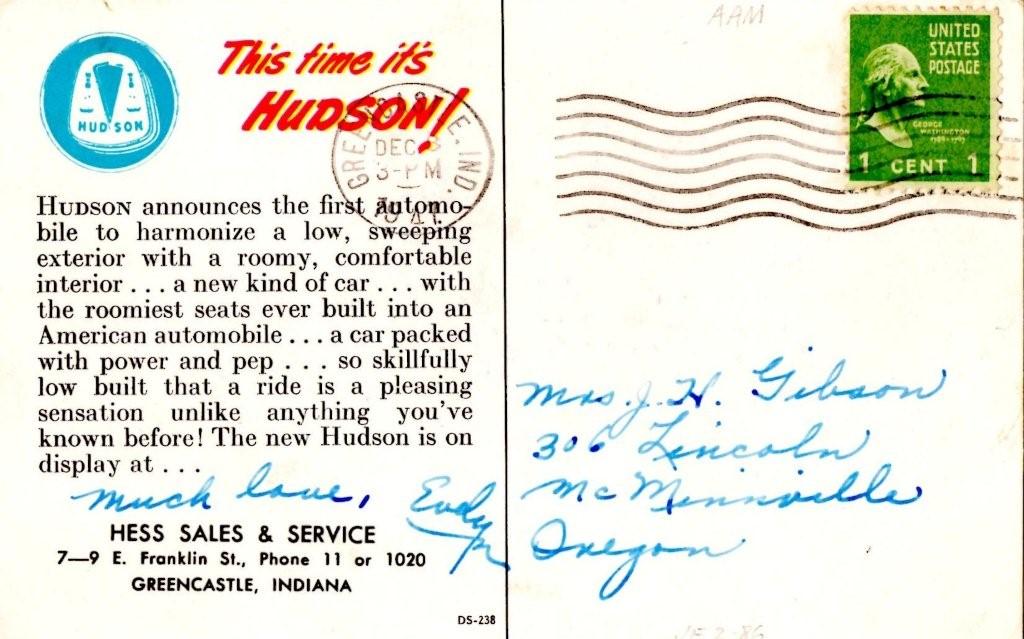 HUDSON
This time it's
HUDSON!
GREENCASTLE, IND.
DEC
3-PM
HUDSON announces the first automo-
bile to harmonize a low, sweeping
exterior with a roomy, comfortable
interior . . . a new kind of car . . . with
the roomiest seats ever built into an
American automobile . . . a car packed
with power and pep . . . so skillfully
low built that a ride is a pleasing
sensation unlike anything you've
known before! The new Hudson is on
display at . . .
much love, Evelyn
HESS SALES & SERVICE
7—9 E. Franklin St., Phone 11 or 1020
GREENCASTLE, INDIANA
DS-238
AAM
UNITED
STATES
POSTAGE
GEORGE
WASHINGTON
1789-1797
1 CENT 1
Mrs. J. H. Gibson
306 Lincoln
McMinnville
Oregon